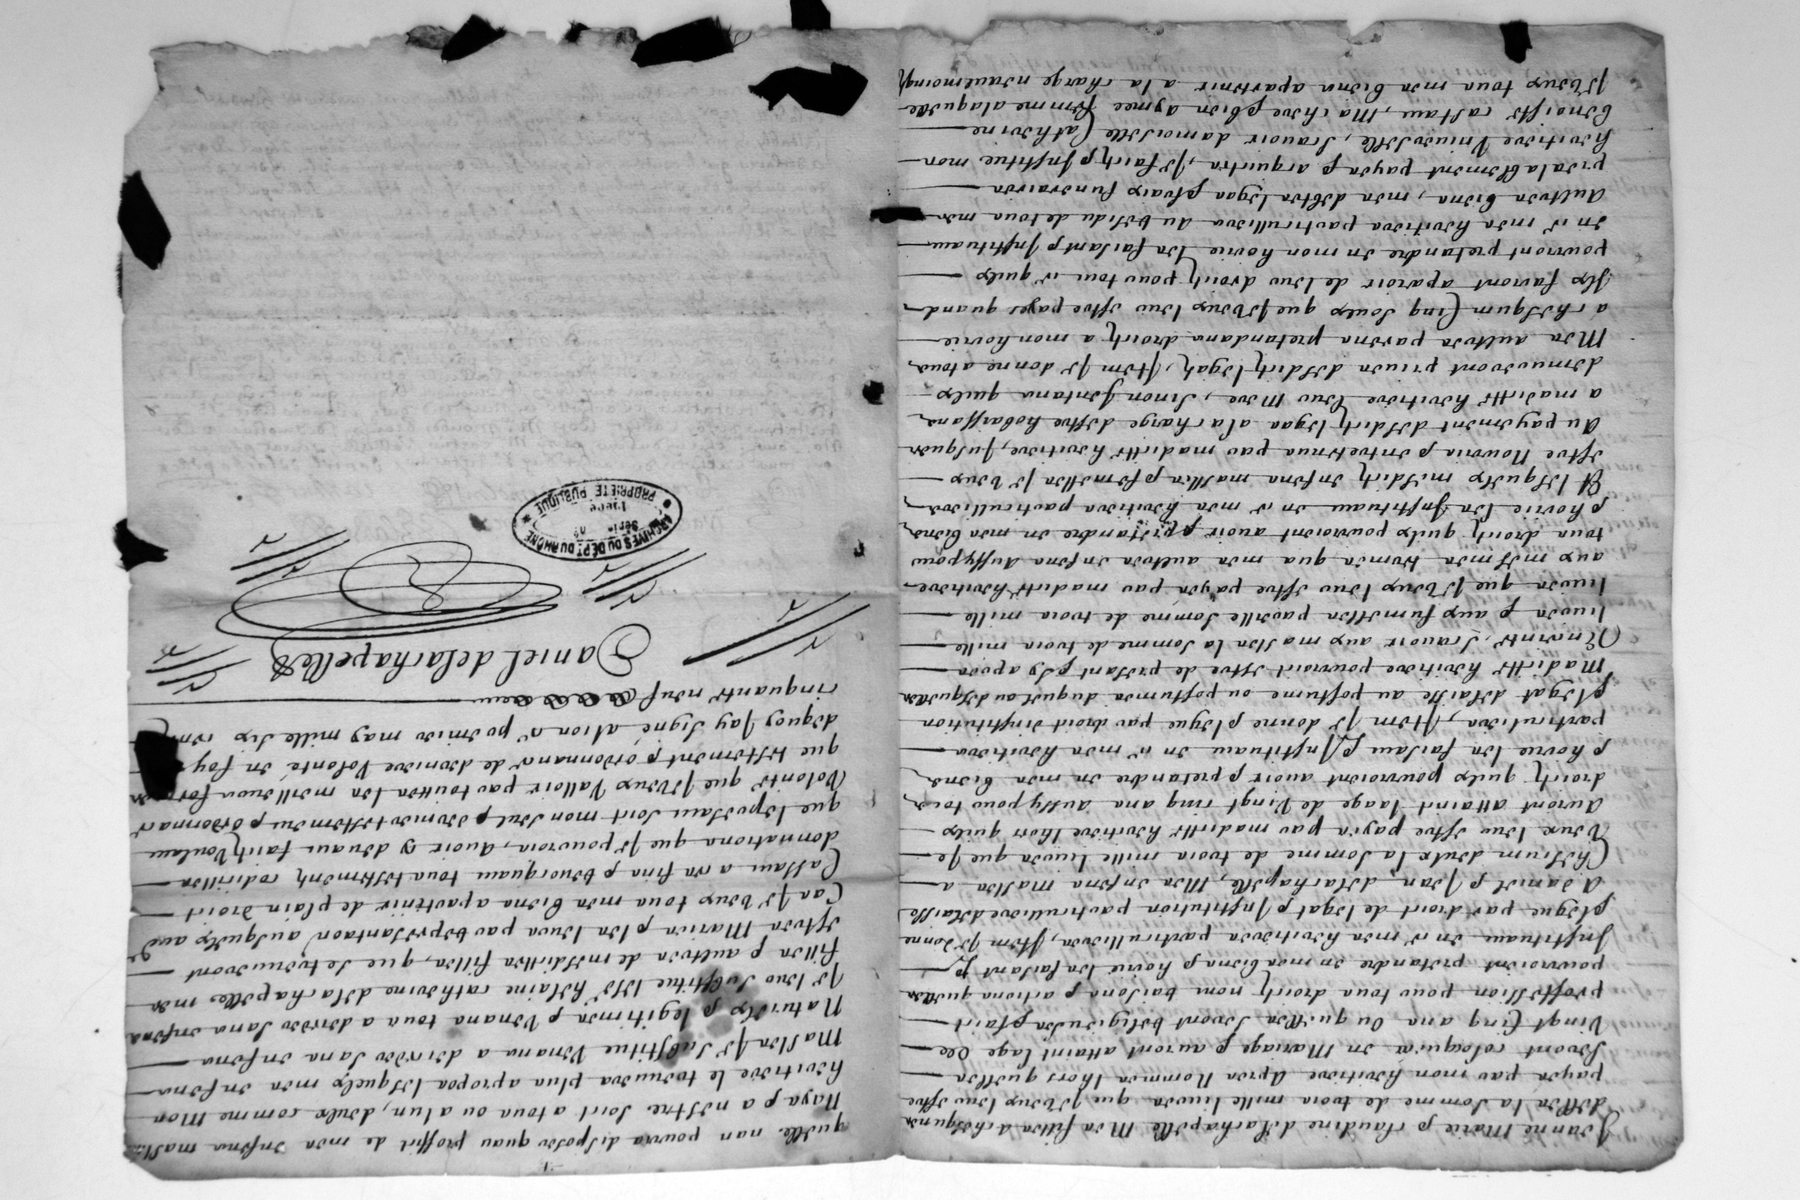 Jeanne Marie & claudine delachapelle Mes filles a chescune
delles la somme de trois mille livres que Je veux leur estre
payes par mon heritiere apres Nommee lhors quelles
seront coloquees en Mariage & auront attaint lage de
Vingt Cinq ans, Ou quelles seront religieuses & fait
proffession pour tous droicts nom raisons & actions quelles
pourroient pretandre en mes biens & hoirie les faisant &
Instituant en ce mes heritieres particullieres, Item Je donne
& legue par droict de legat & Institution particulliere delaisse
A daniel & Jean delachapelle, Mes enfens masles a
Chescum deulx la somme de trois mille livres que Je
Veux leur estre payes par madicte heritiere lhors quilz
Auront attaint laage de Vingt cinq ans aussy pour tous
droicts quilz pourroient avoir & pretandre en mes biens
& hoirie les faisant & Instituant en ce mes heritiers
particuliers, Item Je donne & legue par droict dinstitution
& legat delaisse au postume ou postumes duquel ou desquelles
Madicte heritiere pourroit estre de presant & cy apres
Enceinte, scavoir aux masles la somme de trois mille
livres & aux fumelles pareille somme de trois mille
livres que Je veux leur estre payes par madicte heritiere
aux mesmes termes que mes aultres enfens Aussy pour
tous droicts quilz pourroient avoir & pretandre en mes biens
& hoirie les Instituant en ce mes heritiers particulliers
Et lesquelx mesdicts enfens masles & femelles Je veux
estre Nourris & entretenus par madicte heritiere, Jusques
Au payement desdicts legas a la charge destre hobeissans
a madicte heritiere leur Mere, sinon Jentens quilz
demeureront prives desdicts legats, Item Je donne a tous
Mes aultres parens pretandans droicts a mon hoirie
a chesqum Cinq soulx que Je veux leur estre payes quand
Ilz fairont aparoir de leur droicts pour tout ce quilz
pourroient pretandre en mon hoirie les faisant & Instituant
en ce mes heritiers particulliers au residu de tous mes
Aultres biens, mes debtes legas & fraix funeraires
prealablement payes & acquictes, Je faicts & Institue mon
heritiere Universelle, scavoir damoiselle Catherine
benoiste castau, Ma chere & bien aymee femme a laquelle
Je veux tous mes biens apartenir a la charge neaulmoings
quelle nan pourra disposer quau proffict de mes enfens masles
Naya & a nestre soict a tous ou a lun, deulx comme Mon
heritiere le trouvera plus apropos lesquelx mes enfens
Masles Je substitue venans a deceder sans enfens
Naturelz & legitimes & venans tous a deceder sans enfens
Je leur substitue lesd helaine catherine delachapelles mes
filles & aultres de mesdictes filles, que se trouveront
estres Maries & les leurs par representaon ausquelx aud
Cas Je veux tous mes biens apartenir de plain droict
Cassant a ces fins & revocquant tous testements codicilles
donnations que Je pourrois, avoir cy devant faicts Voulant
que le presant soict mon seul & dernier testement & ordonnance
Volonte que Je veux valloir par touttes les meilleures formes
que testement & ordonnance de derniere Volonté en foy
dequoy Jay signé a lion ce premier may mille six cens
cinquante neuf
Daniel delachapelle
ARCHIVES DU DÉPT. DU RHONE
Série
n°
Pièce
PROPRIÉTÉ PUBLIQUE